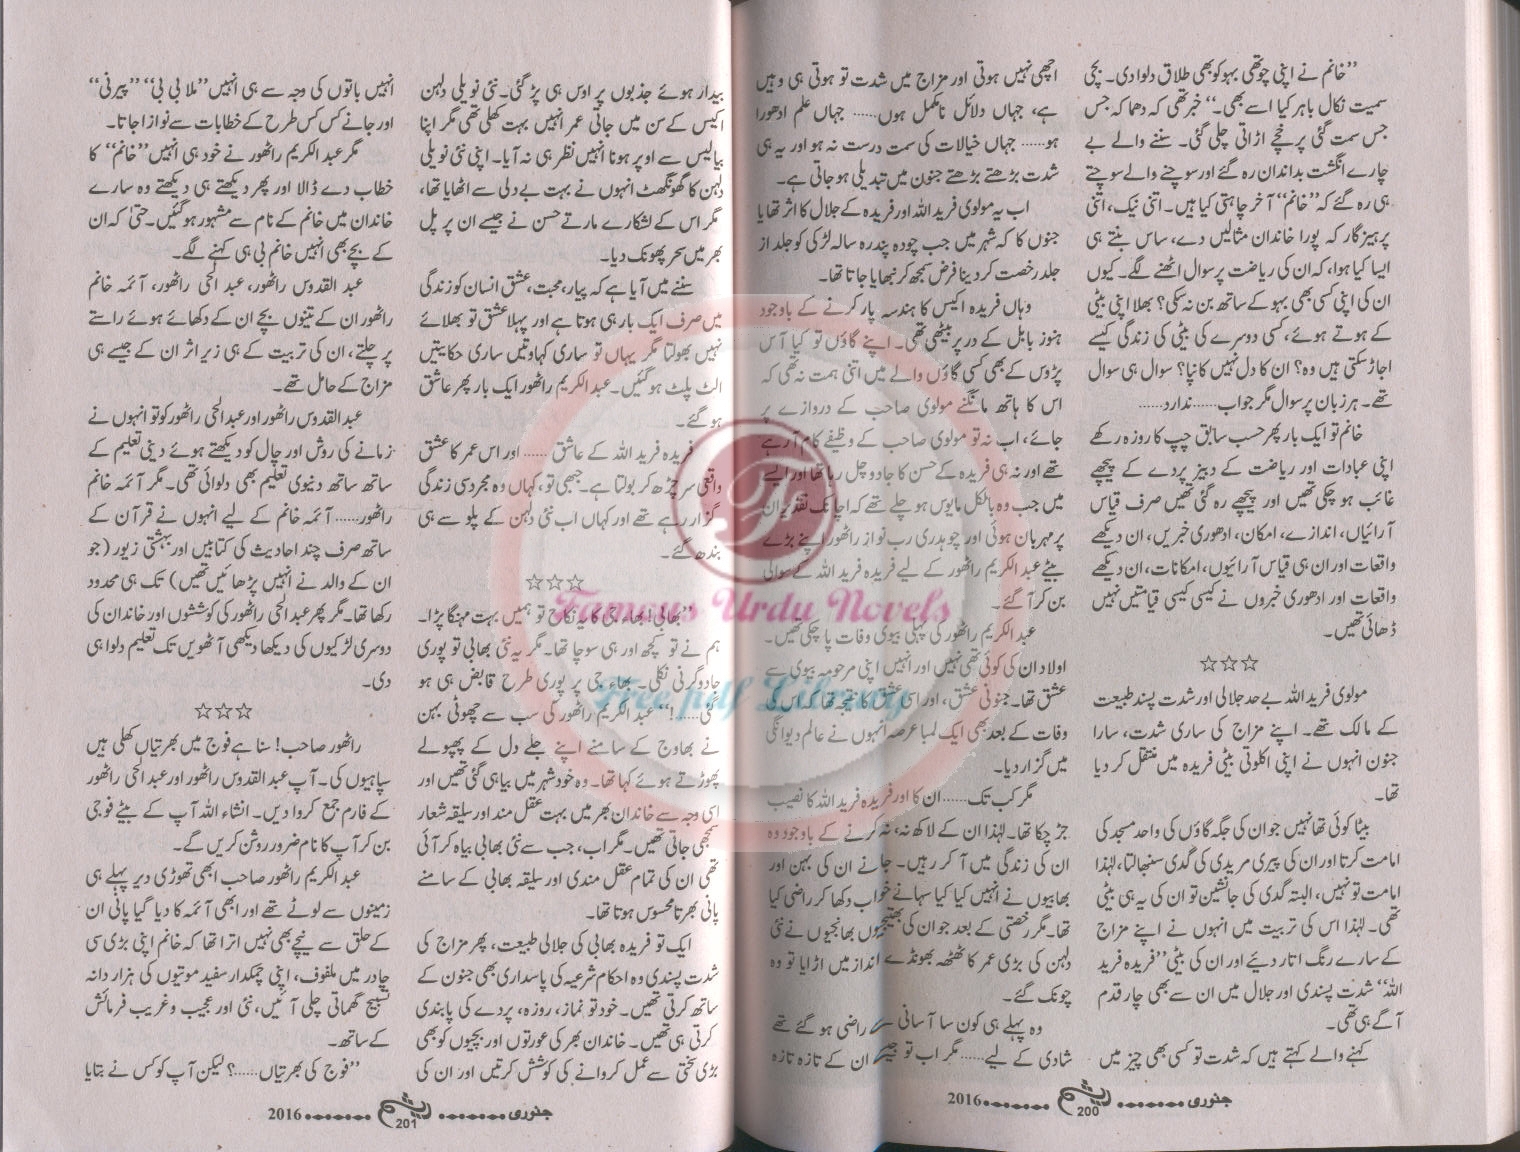 ”خانم نے اپنی چوتھی بہو کو بھی طلاق دلوا دی۔ بچی
سمیت نکال باہر کیا اسے بھی۔“ خبر تھی کہ دھماکہ جس
جس سمت گئی پرخچے اڑاتی چلی گئی۔ سننے والے بے
چارے انگشت بدانداں رہ گئے اور سوچنے والے سوچتے
ہی رہ گئے کہ ”خانم“ آخر چاہتی کیا ہیں۔ اتنی نیک، اتنی
پرہیز گار کہ پورا خاندان مثالیں دے، ساس بنتے ہی
ایسا کیا ہوا، کہ ان کی ریاضت پر سوال اٹھنے لگے۔ کیوں
ان کی اپنی کسی بھی بہو کے ساتھ بن نہ سکی؟ بھلا اپنی بیٹی
کے ہوتے ہوئے، کسی دوسرے کی بیٹی کی زندگی کیسے
اجاڑ سکتی ہیں وہ؟ ان کا دل نہیں کانپا؟ سوال ہی سوال
تھے۔ ہر زبان پر سوال مگر جواب...... ندارد......
خانم تو ایک بار پھر حسب سابق چپ کا روزہ رکھے
اپنی عبادات اور ریاضت کے دبیز پردے کے پیچھے
غائب ہو چکی تھیں اور پیچھے رہ گئی تھیں صرف قیاس
آرائیاں، اندازے، امکان، ادھوری خبریں، ان دیکھے
واقعات اور ان ہی قیاس آرائیوں، امکانات، ان دیکھے
واقعات اور ادھوری خبروں نے کیسی کیسی قیامتیں نہیں
ڈھائی تھیں۔
☆☆☆
مولوی فرید اللہ بے حد جلالی اور شدت پسند طبیعت
کے مالک تھے۔ اپنے مزاج کی ساری شدت، سارا
جنون انہوں نے اپنی اکلوتی بیٹی فریدہ میں منتقل کر دیا
تھا۔
بیٹا کوئی تھا نہیں جو ان کی جگہ گاؤں کی واحد مسجد کی
امامت کرتا اور ان کی پیری مریدی کی گدی سنبھالتا، لہٰذا
امامت تو نہیں، البتہ گدی کی جانشین تو ان کی یہ ہی بیٹی
تھی۔ لہٰذا اس کی تربیت میں انہوں نے اپنے مزاج
کے سارے رنگ اتار دیئے اور ان کی بیٹی ”فریدہ فرید
اللہ“ شدت پسندی اور جلال میں ان سے بھی چار قدم
آگے ہی تھی۔
کہنے والے کہتے ہیں کہ شدت تو کسی بھی چیز میں
اچھی نہیں ہوتی اور مزاج میں شدت تو ہوتی ہی وہیں
ہے، جہاں دلائل نامکمل ہوں...... جہاں علم ادھورا
ہو...... جہاں خیالات کی سمت درست نہ ہو اور یہ ہی
شدت بڑھتے بڑھتے جنون میں تبدیلی ہو جاتی ہے۔
اب یہ مولوی فرید اللہ اور فریدہ کے جلال کا اثر تھا یا
جنوں کا کہ شہر میں جب چودہ پندرہ سالہ لڑکی کو جلد از
جلد رخصت کر دینا فرض سمجھ کر نبھایا جاتا تھا۔
وہاں فریدہ اکیس کا ہندسہ پار کرنے کے باوجود
ہنوز بابل کے در پر بیٹھی تھی۔ اپنے گاؤں تو کیا آس
پڑوس کے بھی کسی گاؤں والے میں اتنی ہمت نہ تھی کہ
اس کا ہاتھ مانگنے مولوی صاحب کے دروازے پر
جائے، اب نہ تو مولوی صاحب کے وظیفے کام آ رہے
تھے اور نہ ہی فریدہ کے حسن کا جادو چل رہا تھا اور ایسے
میں جب وہ بالکل مایوس ہو چلے تھے کہ اچانک تقدیر ان
پر مہربان ہوئی اور چوہدری رب نواز راٹھور اپنے بڑے
بیٹے عبد الکریم راٹھور کے لیے فریدہ فرید اللہ کے سوالی
بن کر آ گئے۔
عبد الکریم راٹھور کی پہلی بیوی وفات پا چکی تھیں۔
اولاد ان کی کوئی تھی نہیں اور انہیں اپنی مرحومہ بیوی سے
عشق تھا۔ جنونی عشق، اور اسی عشق کا نتیجہ تھا کہ اس کی
وفات کے بعد بھی ایک لمبا عرصہ انہوں نے عالم دیوانگی
میں گزار دیا۔
مگر کب تک...... ان کا اور فریدہ فرید اللہ کا نصیب
جڑ چکا تھا۔ لہٰذا ان کے لاکھ نہ، نہ کرنے کے باوجود وہ
ان کی زندگی میں آ کر رہیں۔ جانے ان کی بہن اور
بھابیوں نے انہیں کیا کیا سہانے خواب دکھا کر راضی کیا
تھا۔ مگر رخصتی کے بعد جو ان کی بھتیجیوں بھانجیوں نے نئی
دلہن کی بڑی عمر کا ٹھٹھہ بھونڈے انداز میں اڑایا تو وہ
چونک گئے۔
وہ پہلے ہی کون سا آسانی سے راضی ہو گئے تھے
شادی کے لیے...... مگر اب تو جیسے ان کے تازہ تازہ
جنوری ........ ریشم 200 ........ 2016
بیدار ہوئے جذبوں پر اوس ہی پڑ گئی۔ نئی نویلی دلہن
اکیس کے سن میں جاتی عمر انہیں بہت کھلی تھی مگر اپنا
بیالیس سے اوپر ہونا انہیں نظر ہی نہ آیا۔ اپنی نئی نویلی
دلہن کا گھونگھٹ انہوں نے بہت بے دلی سے اٹھایا تھا،
مگر اس کے لشکارے مارتے حسن نے جیسے ان پر پل
بھر میں سحر پھونک دیا۔
سننے میں آیا ہے کہ پیار، محبت، عشق انسان کو زندگی
میں صرف ایک بار ہی ہوتا ہے اور پہلا عشق تو بھلائے
نہیں بھولتا مگر یہاں تو ساری کہاوتیں ساری حکایتیں
الٹ پلٹ ہو گئیں۔ عبد الکریم راٹھور ایک بار پھر عاشق
ہو گئے۔
فریدہ فرید اللہ کے عاشق...... اور اس عمر کا عشق
واقعی سر چڑھ کر بولتا ہے۔ جبھی تو، کہاں وہ مجرد سی زندگی
گزار رہے تھے اور کہاں اب نئی دلہن کے پلو سے ہی
بندھ گئے۔
☆☆☆
”بھابی! بھاء جی کا یہ نکاح تو ہمیں بہت مہنگا پڑا۔
ہم نے تو کچھ اور ہی سوچا تھا۔ مگر یہ نئی بھابی تو پوری
جادوگرنی نکلی۔ بھاء جی پر پوری طرح قابض ہی ہو
گئی......!“ عبد الکریم راٹھور کی سب سے چھوٹی بہن
نے بھاوج کے سامنے اپنے جلے دل کے پھپولے
پھوڑتے ہوئے کہا تھا۔ وہ خود شہر میں بیاہی گئی تھیں اور
اسی وجہ سے خاندان بھر میں بہت عقل مند اور سلیقہ شعار
سمجھی جاتی تھیں۔ مگر اب، جب سے نئی بھابی بیاہ کر آئی
تھی ان کی تمام عقل مندی اور سلیقہ بھابی کے سامنے
پانی بھرتا محسوس ہوتا تھا۔
ایک تو فریدہ بھابی کی جلالی طبیعت، پھر مزاج کی
شدت پسندی وہ احکام شرعیہ کی پاسداری بھی جنون کے
ساتھ کرتی تھیں۔ خود تو نماز، روزہ، پردے کی پابندی
کرتی ہی تھیں۔ خاندان بھر کی عورتوں اور بچیوں کو بھی
بڑی سختی سے عمل کروانے کی کوشش کرتیں اور ان کی
انہیں باتوں کی وجہ سے ہی انہیں ”ملا بی بی“ ”پیرنی“
اور جانے کس کس طرح کے خطابات سے نوازا جاتا۔
مگر عبد الکریم راٹھور نے خود ہی انہیں ”خانم“ کا
خطاب دے ڈالا اور پھر دیکھتے ہی دیکھتے وہ سارے
خاندان میں خانم کے نام سے مشہور ہو گئیں۔ حتیٰ کہ ان
کے بچے بھی انہیں خانم بی ہی کہنے لگے۔
عبد القدوس راٹھور، عبد الحی راٹھور، آئمہ خانم
راٹھور ان کے تینوں بچے ان کے دکھائے ہوئے راستے
پر چلتے، ان کی تربیت کے ہی زیر اثر ان کے جیسے ہی
مزاج کے حامل تھے۔
عبد القدوس راٹھور اور عبد الحی راٹھور کو تو انہوں نے
زمانے کی روش اور چال کو دیکھتے ہوئے دینی تعلیم کے
ساتھ ساتھ دنیوی تعلیم بھی دلوائی تھی۔ مگر آئمہ خانم
راٹھور...... آئمہ خانم کے لیے انہوں نے قرآن کے
ساتھ صرف چند احادیث کی کتابیں اور بہشتی زیور (جو
ان کے والد نے انہیں پڑھائیں تھیں) تک ہی محدود
رکھا تھا۔ مگر پھر عبد الحی راٹھور کی کوششوں اور خاندان کی
دوسری لڑکیوں کی دیکھا دیکھی آٹھویں تک تعلیم دلوا ہی
دی۔
☆☆☆
راٹھور صاحب! سنا ہے فوج میں بھرتیاں کھلی ہیں
سپاہیوں کی۔ آپ عبد القدوس راٹھور اور عبد الحی راٹھور
کے فارم جمع کروا دیں۔ انشاء اللہ آپ کے بیٹے فوجی
بن کر آپ کا نام ضرور روشن کریں گے۔
عبد الکریم راٹھور صاحب ابھی تھوڑی دیر پہلے ہی
زمینوں سے لوٹے تھے اور ابھی آئمہ کا دیا گیا پانی ان
کے حلق سے نیچے بھی نہیں اترا تھا کہ خانم اپنی بڑی سی
چادر میں ملفوف، اپنی چمکدار سفید موتیوں کی ہزار دانہ
تسبیح گھماتی چلی آئیں، نئی اور عجیب و غریب فرمائش
کے ساتھ۔
”فوج کی بھرتیاں......؟ لیکن آپ کو کس نے بتایا
جنوری ........ ریشم 201 ........ 2016
Famous Urdu Novels
Free pdf Library